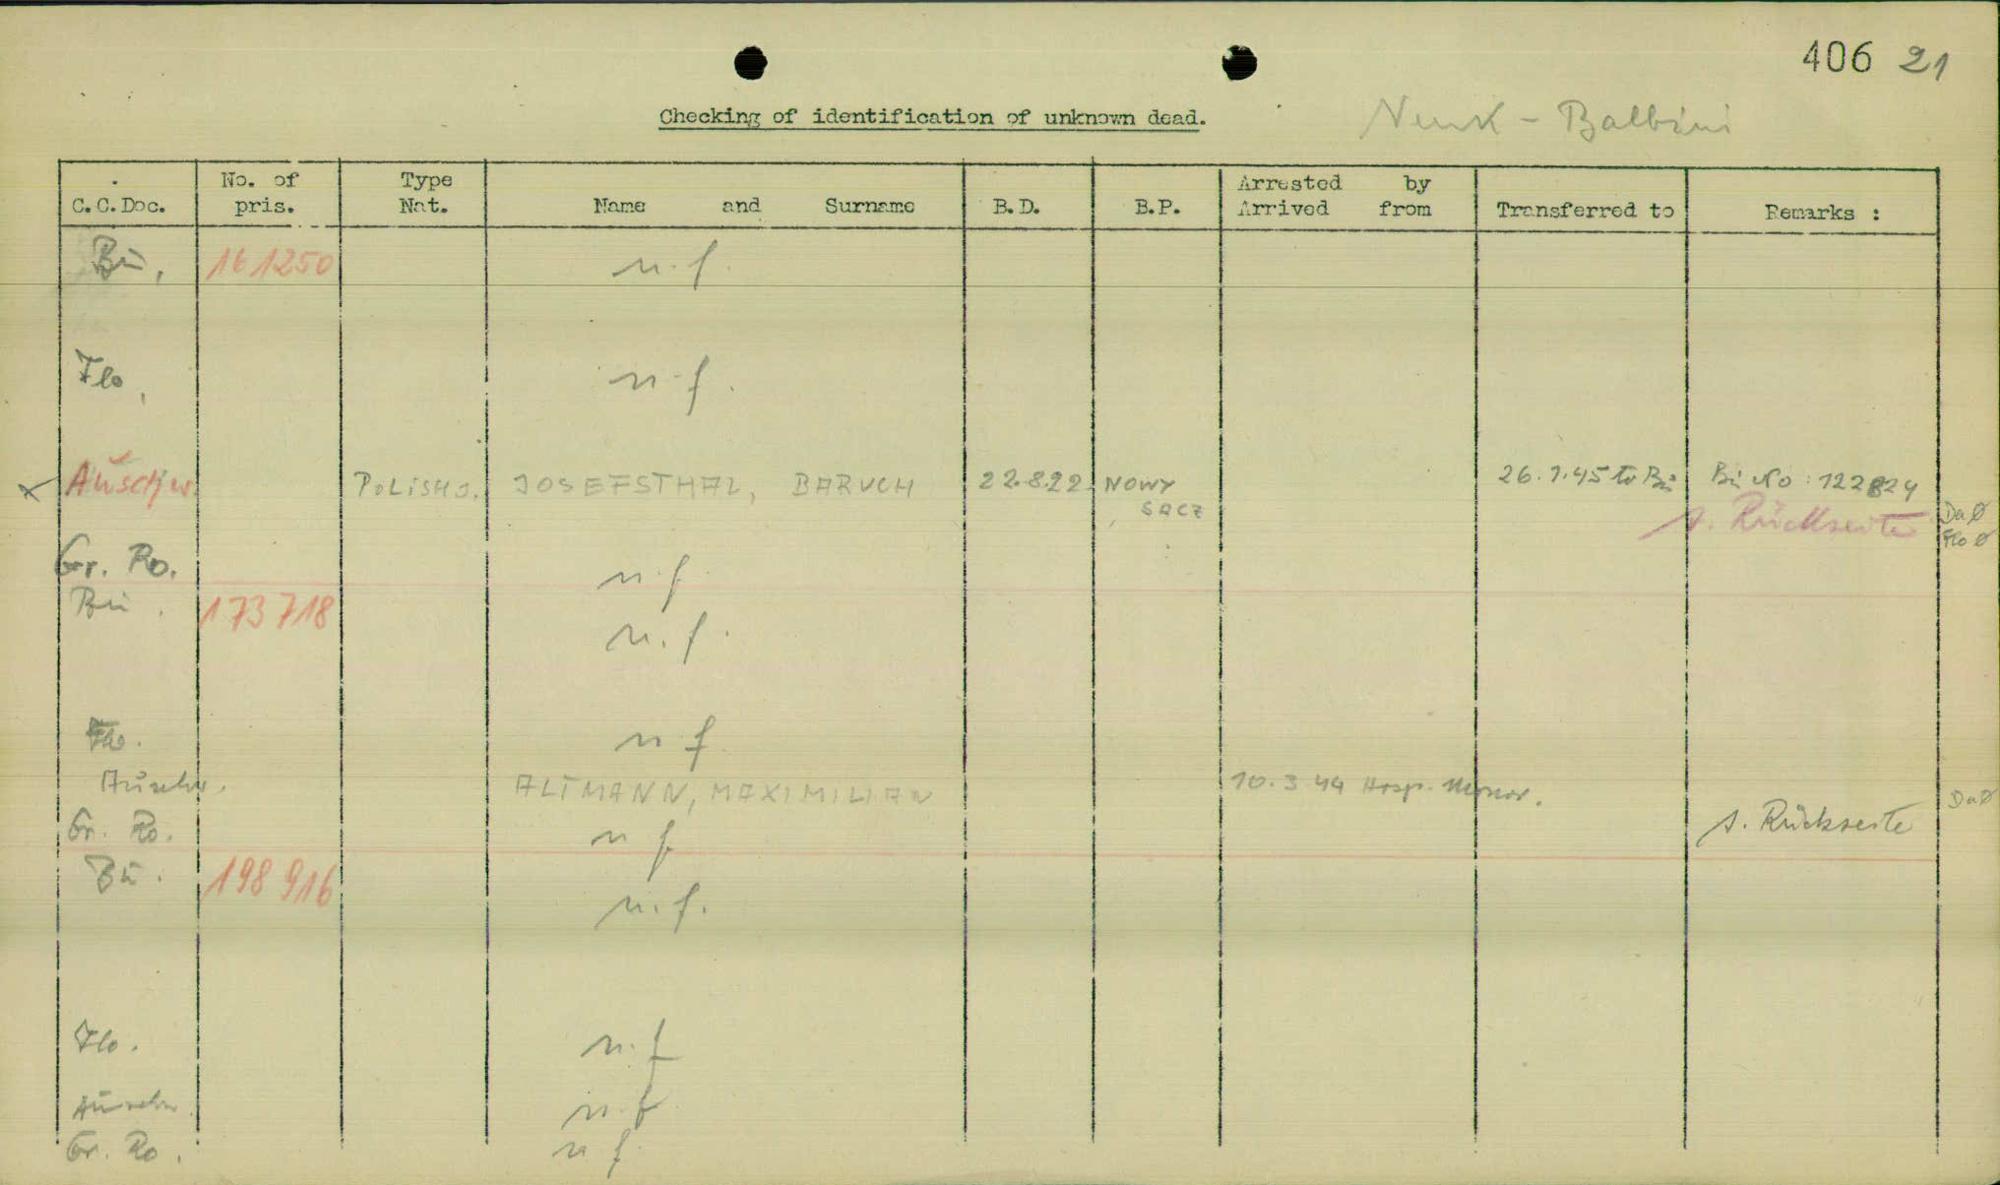 406 21
Checking of identification of unknown dead.
Neuk - Balbini
C.C.Doc. No. of pris. Type Nat. Name and Surname B.D. B.P. Arrested by Arrived from Transferred to Remarks :
Bu, 161250 n.f.
Flo, n.f.
x Auschw. Polish J. JOSEFSTHAL, BARUCH 22.8.22 NOWY SACZ 26.1.45 to Bu Bu No: 122824
s. Rückseite
Da Ø
Flo Ø
Gr. Ro. n.f.
Bu. 173718 n.f.
Flo. n f
Auschw. ALTMANN, MAXIMILIAN 10.3.44 Hosp. Monow. Da Ø
s. Rückseite
Gr. Ro. n f
Bu. 198916 n.f.
Flo. n.f
Auschw n.f
Gr. Ro. n f